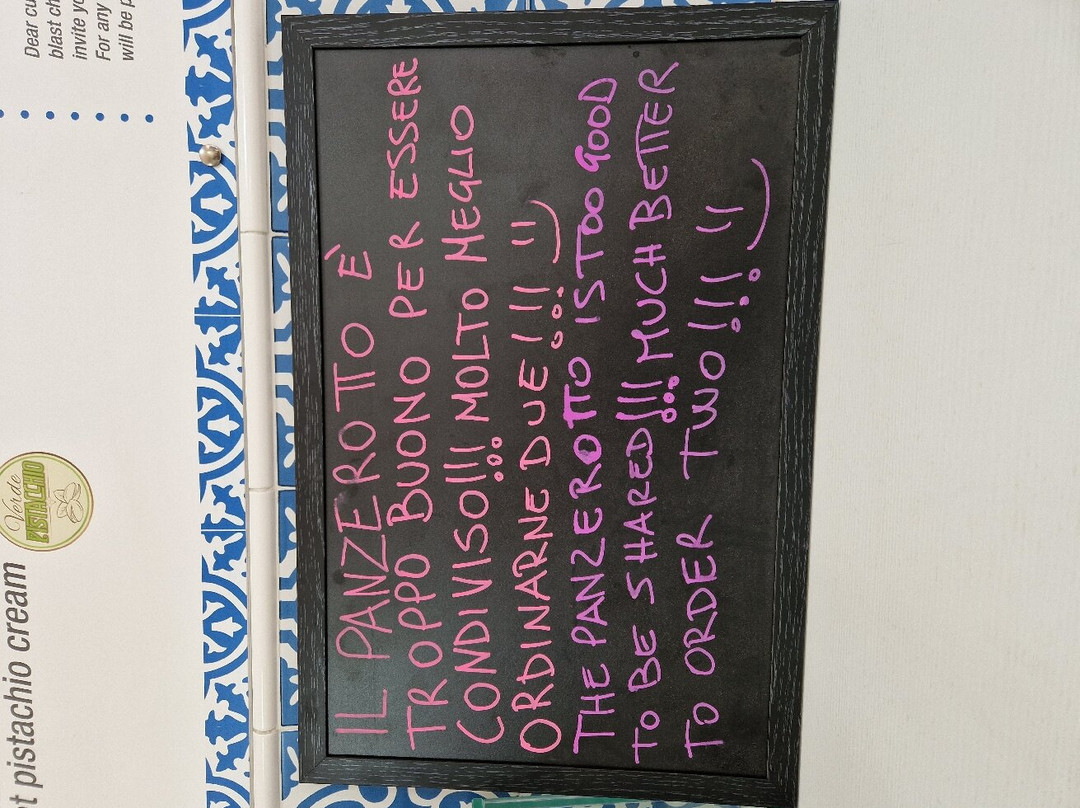 Dear cu
blast ch
invite yo
For any
will be p
Verde
PISTACCHIO
t pistachio cream
IL PANZEROTTO È
TROPPO BUONO PER ESSERE
CONDIVISO!!! MOLTO MEGLIO
ORDINARNE DUE!!! :)
THE PANZEROTTO IS TOO GOOD
TO BE SHARED!!! MUCH BETTER
TO ORDER TWO!!! :)